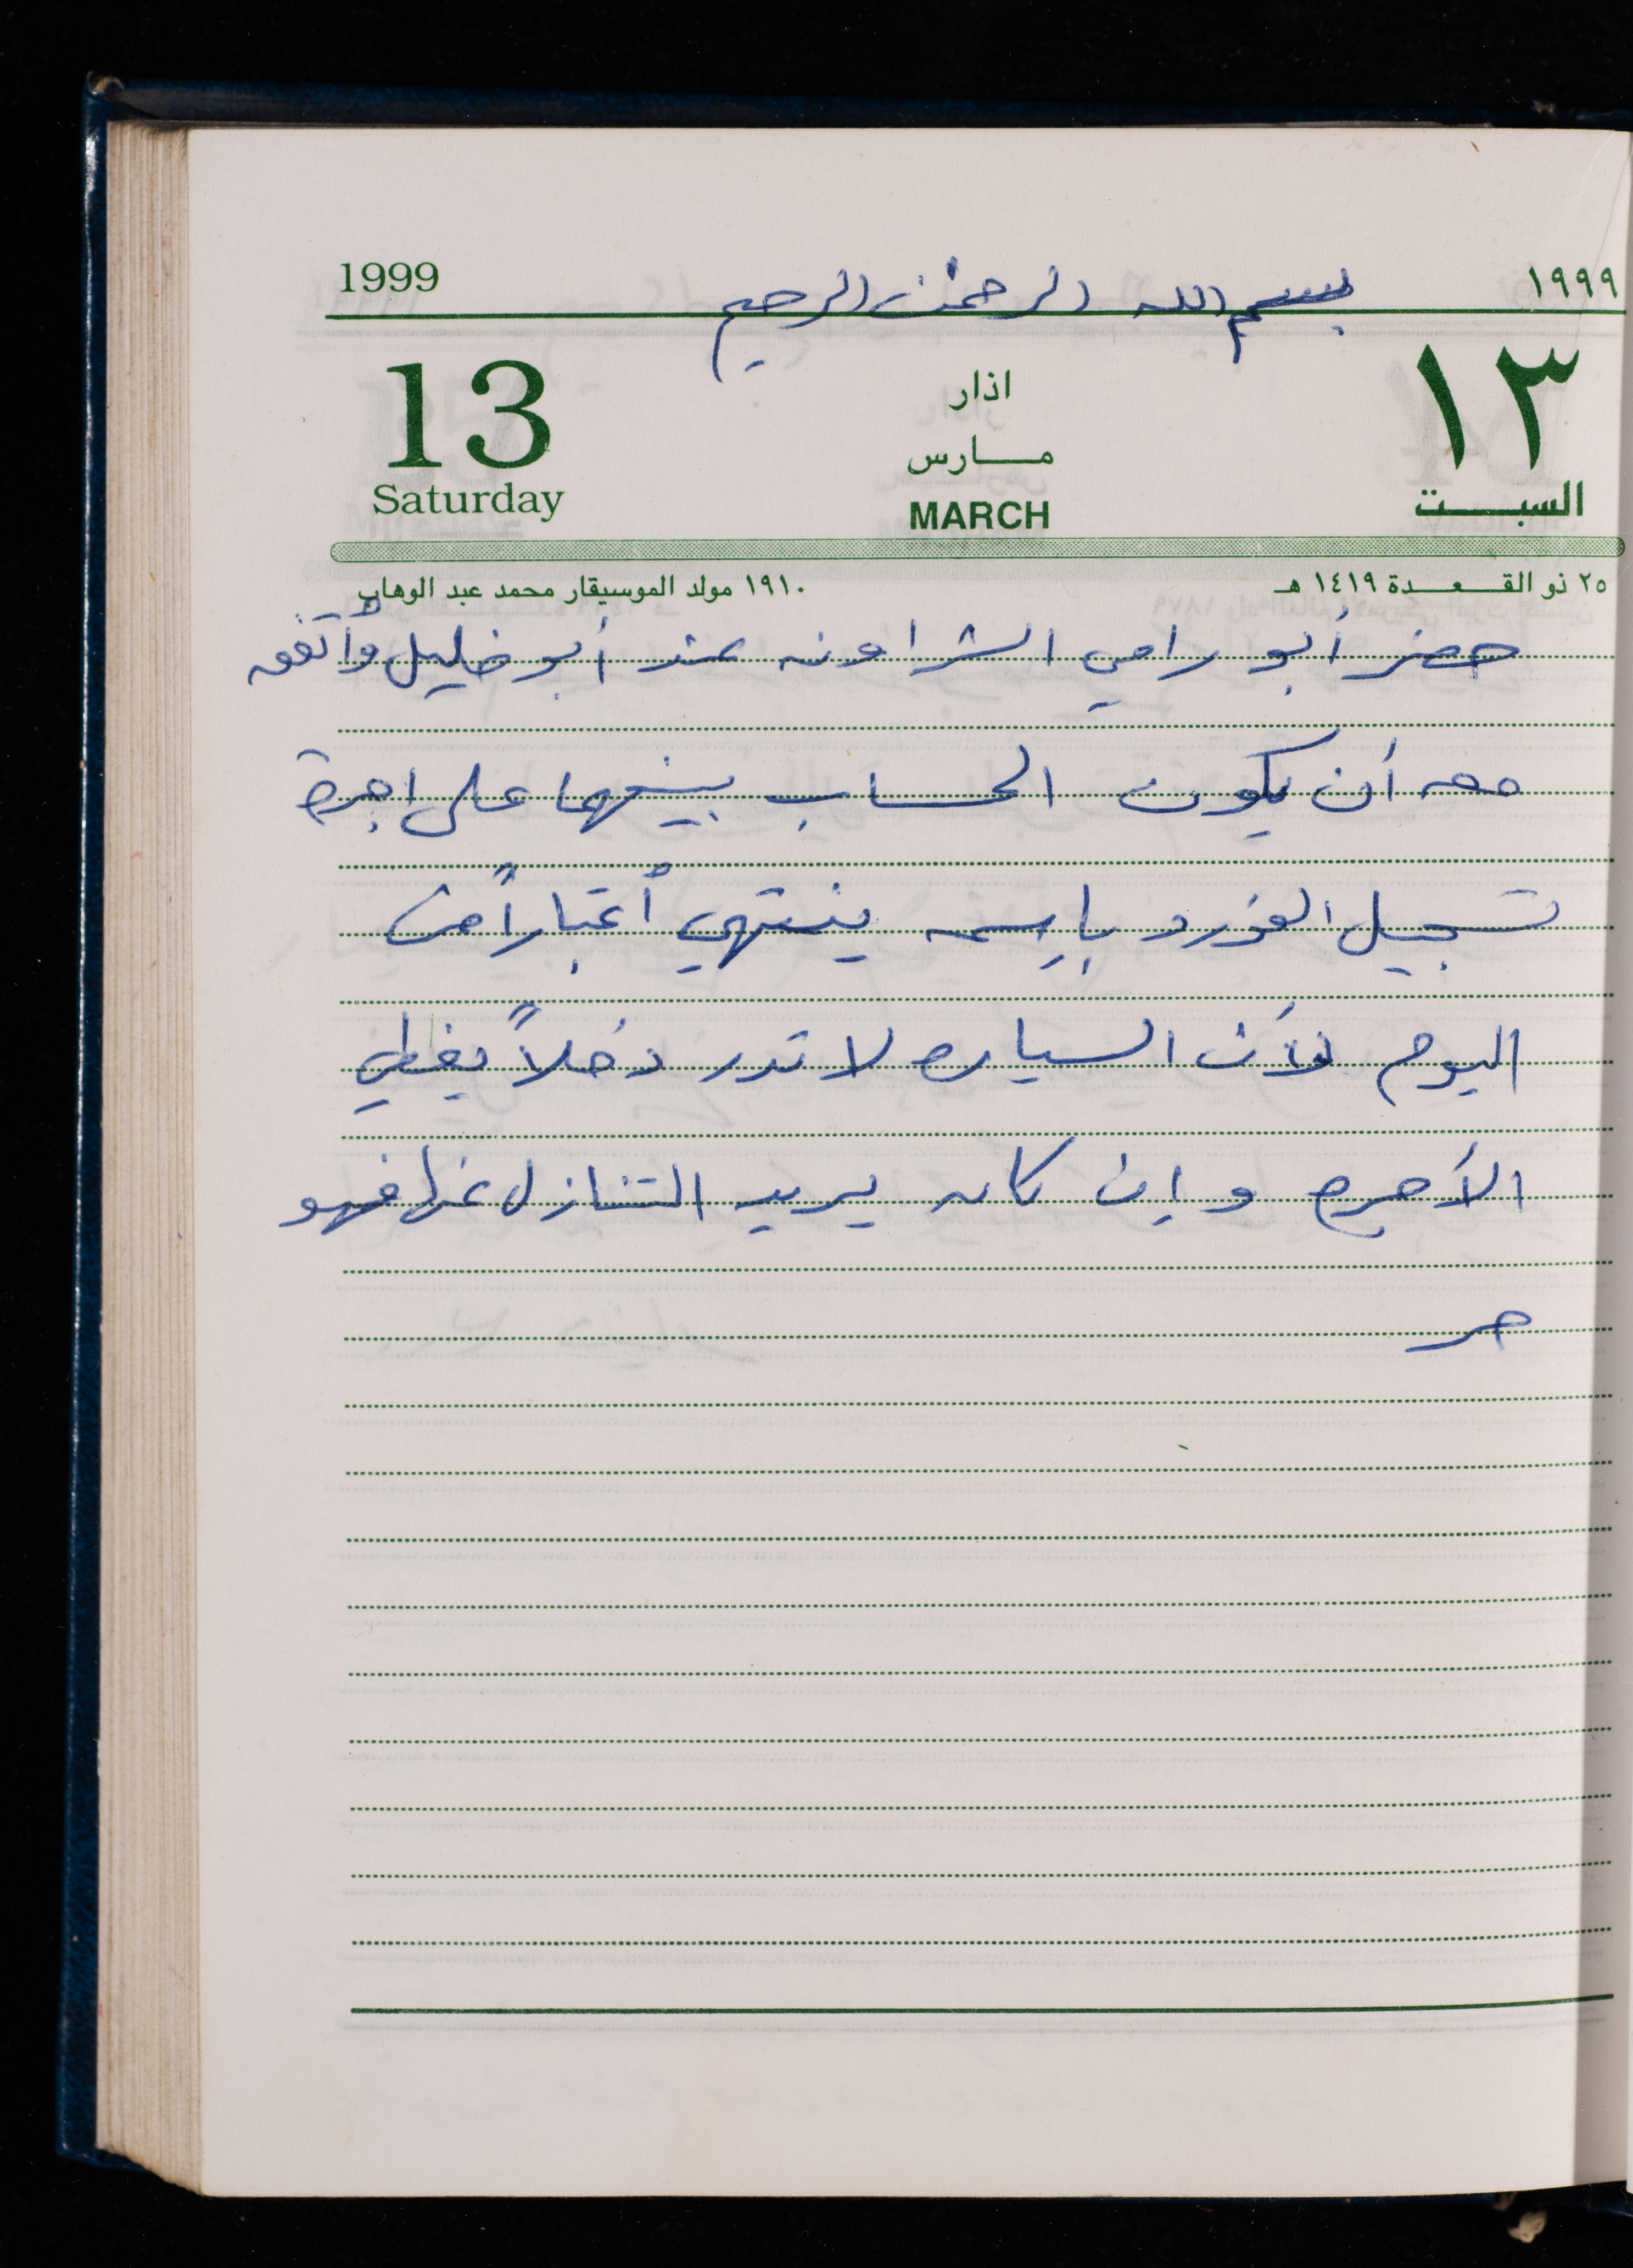 1999
١٩٩٩
بسم الله الرحمن الرحيم
13
Saturday
اذار
مارس
MARCH
١٣
السبت
٢٥ ذو القعدة ١٤١٩ هـ
١٩١٠ مولد الموسيقار محمد عبد الوهاب
حضر أبو رامي الشراونه عند أبو خليل وأتفق
معه أن يكون الحساب بينهما على اجرة
تسجيل الفورد بإسمه ينتهي أعتباراً من
اليوم لأن السياره لا تدر دخلاً يغطي
الأجره وإن كان يريد التنازل عنها فهو
حر